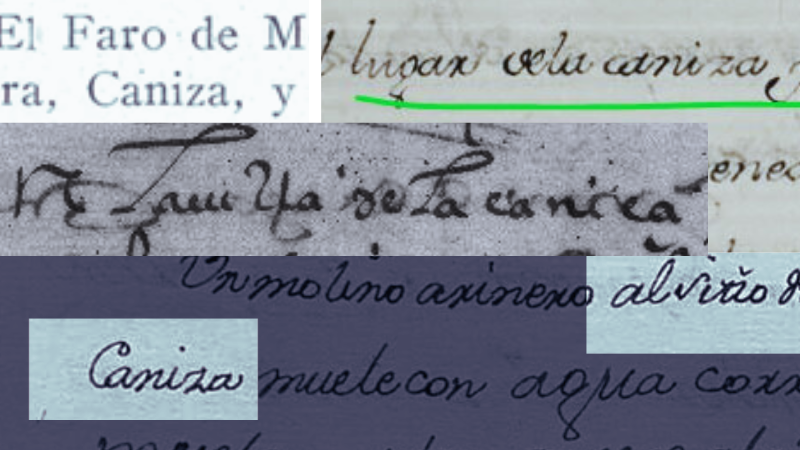 El Faro de M
ra, Caniza, y
lugar dela caniza
de la caniça
Un molino arinero al sitio d
Caniza muele con agua corr